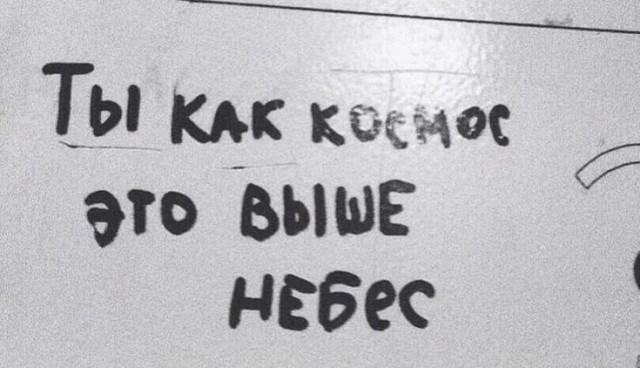 Ты как космос
это выше
небес